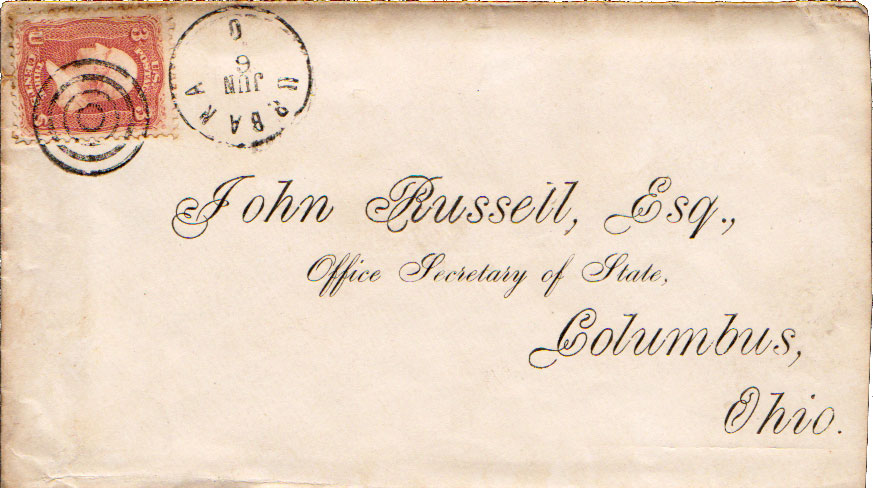 URBANA O
JUN
John Russell, Esq.,
Office Secretary of State,
Columbus,
Ohio.